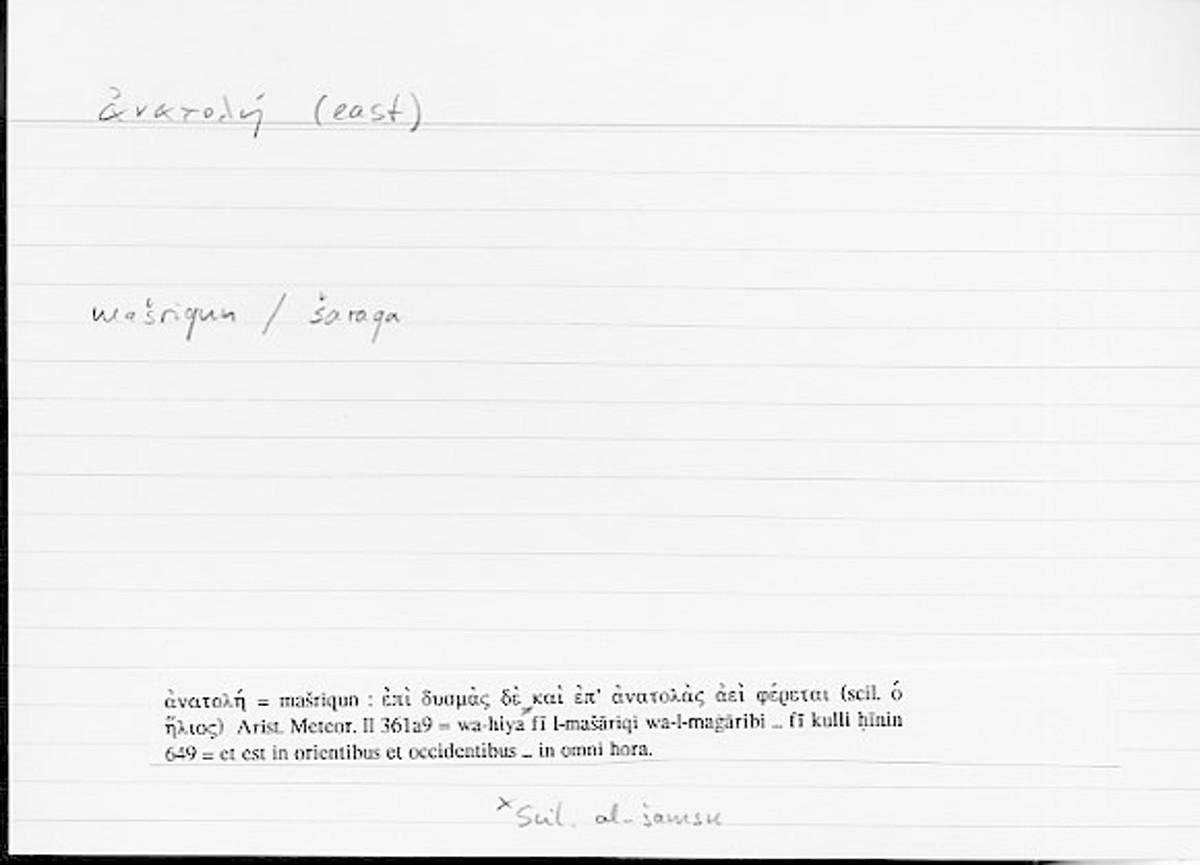 ἀνατολή (east)
mašriqun / šaraqa
ἀνατολή = mašriqun : ἐπὶ δυσμὰς δὲ καὶ ἐπ' ἀνατολὰς ἀεὶ φέρεται (scil. ὁ
ἥλιος) Arist. Meteor. II 361a9 = wa-hiya fī l-mašāriqi wa-l-maġāribi ... fī kulli ḥīnin
649 = et est in orientibus et occidentibus ... in omni hora.
×Scil. al-šamsu